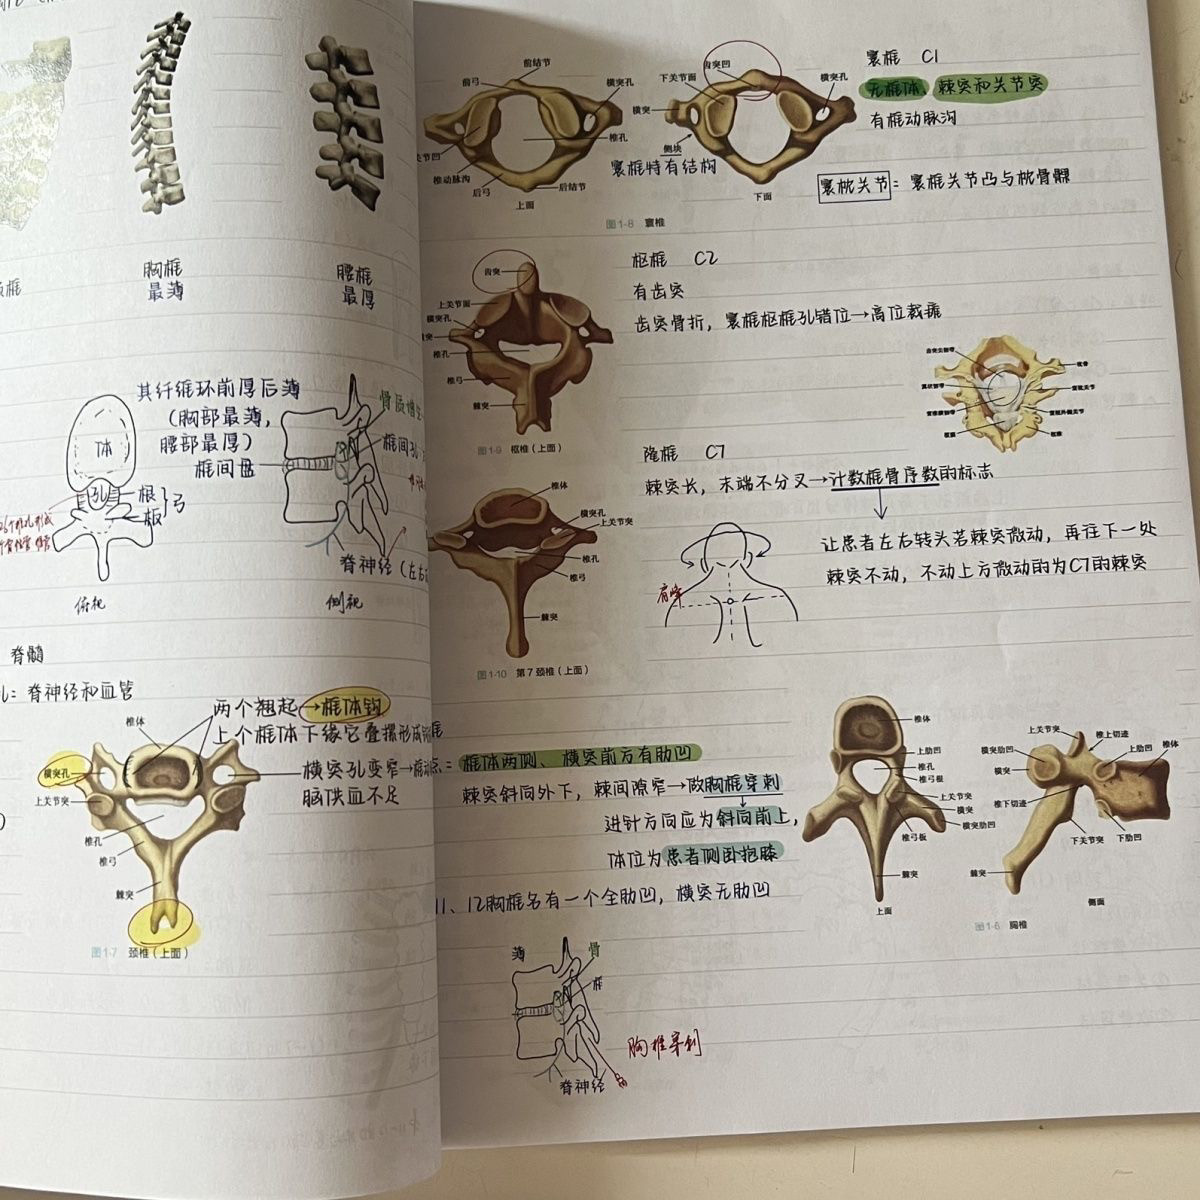 胸椎
最薄
腰椎
最厚
其纤维环前厚后薄
(胸部最薄,
腰部最厚)
椎间盘
体
孔
根
板
弓
骨质增生
椎间孔
脊神经(左右
俯视
侧视
脊髓
脊神经和血管
两个翘起→椎体钩
上个椎体下缘它叠摞形成钩椎
横突孔变窄→椎动
脑供血不足
椎体
横突孔
上关节突
椎孔
椎弓
棘突
图1-7 颈椎(上面)
前结节
前弓
横突孔
椎孔
关节凹
椎动脉沟
后弓
后结节
上面
齿突凹
下关节面
横突孔
横突
侧块
寰椎特有结构
下面
图1-8 寰椎
寰椎 C1
无椎体、棘突和关节突
有椎动脉沟
寰枕关节=寰椎关节凸与枕骨髁
齿突
上关节面
横突孔
椎孔
椎弓
棘突
图1-9 枢椎(上面)
枢椎 C2
有齿突
齿突骨折,寰椎枢椎孔错位→高位截瘫
隆椎 C7
棘突长,末端不分叉→计数椎骨序数的标志
让患者左右转头若棘突微动,再往下一处
棘突不动,不动上方微动的为C7的棘突
肩峰
椎体
横突孔
上关节突
椎孔
椎弓
棘突
图1-10 第7颈椎(上面)
椎体两侧、横突前方有肋凹
棘突斜向外下,棘间隙窄→做胸椎穿刺
进针方向应为斜向前上,
体位为患者侧卧抱膝
11、12胸椎各有一个全肋凹,横突无肋凹
椎体
上肋凹
椎孔
椎弓根
上关节突
横突
横突肋凹
椎弓板
棘突
上面
上关节突
椎上切迹
横突肋凹
上肋凹
椎体
横突
椎下切迹
下关节突
下肋凹
棘突
侧面
图1-6 胸椎
薄
骨
椎
脊神经
胸椎穿刺